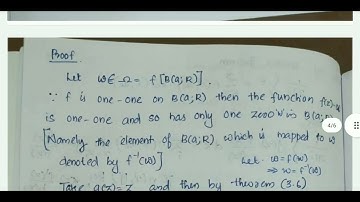 Proof
Let ω ∈ Ω = f[B(a;R)].
∵ f is one-one on B(a;R) then the function f(z)-ω
is one-one and so has only one zero in B(a;R)
[Namely the element of B(a;R) which is mapped to ω
denoted by f⁻¹(ω)]
Let ω = f(w)
⇒ w = f⁻¹(ω)
Take g(z) = z and then by theorem (3.6)
4/6